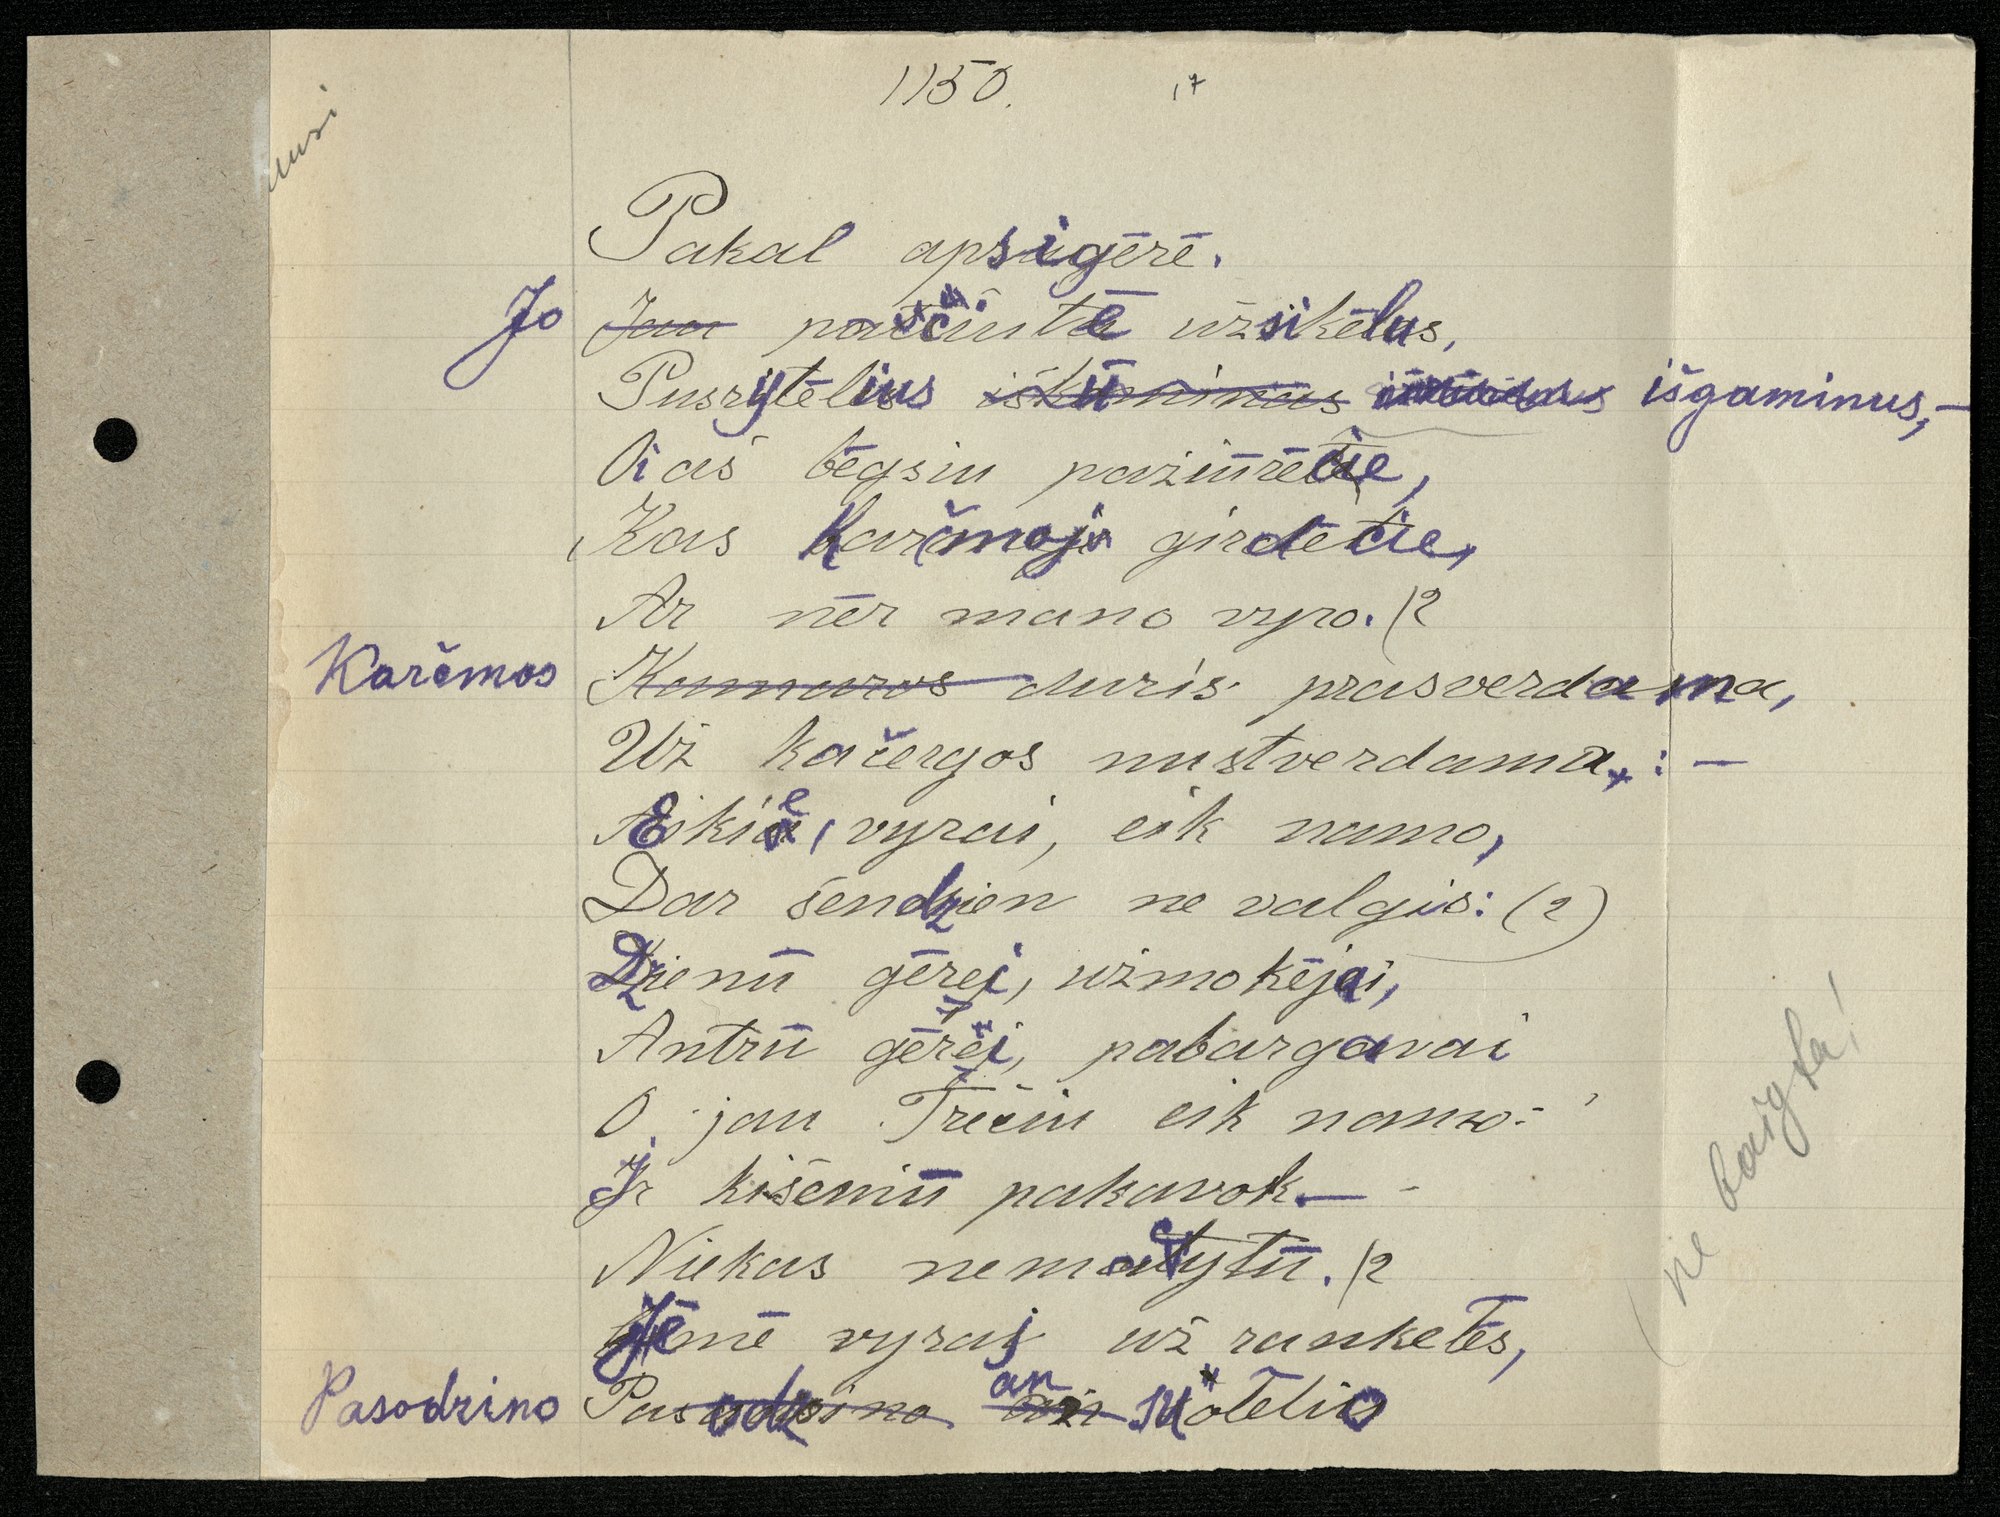 1150. 17
usi
Pakal apsigėrė.
Jo ~~Jau~~ pačiutė užsikėlus,
Pusrytėlius išgaminus, –
Oi aš bėgsiu pažiūrėcie,
Kas karčmoj girdėcie,
Ar nėr mano vyro. /2
Karčmos ~~Kamaros~~ duris prasverdama,
Už kačergos nustverdama: –
Eikie, vyrai, eik namo,
Dar šendzien ne valgis: (2)
Dzienū gėrei, užmokėjai,
Antrū gėrei, pabargavai
O jau Trečiu eik namo –
Ir kišeniū pakavok. –
Niekas nematytū. /2
Jėmė vyrai už ranketės,
Pasodzino ~~Pasodzino~~ an stotelio
ne baigta!